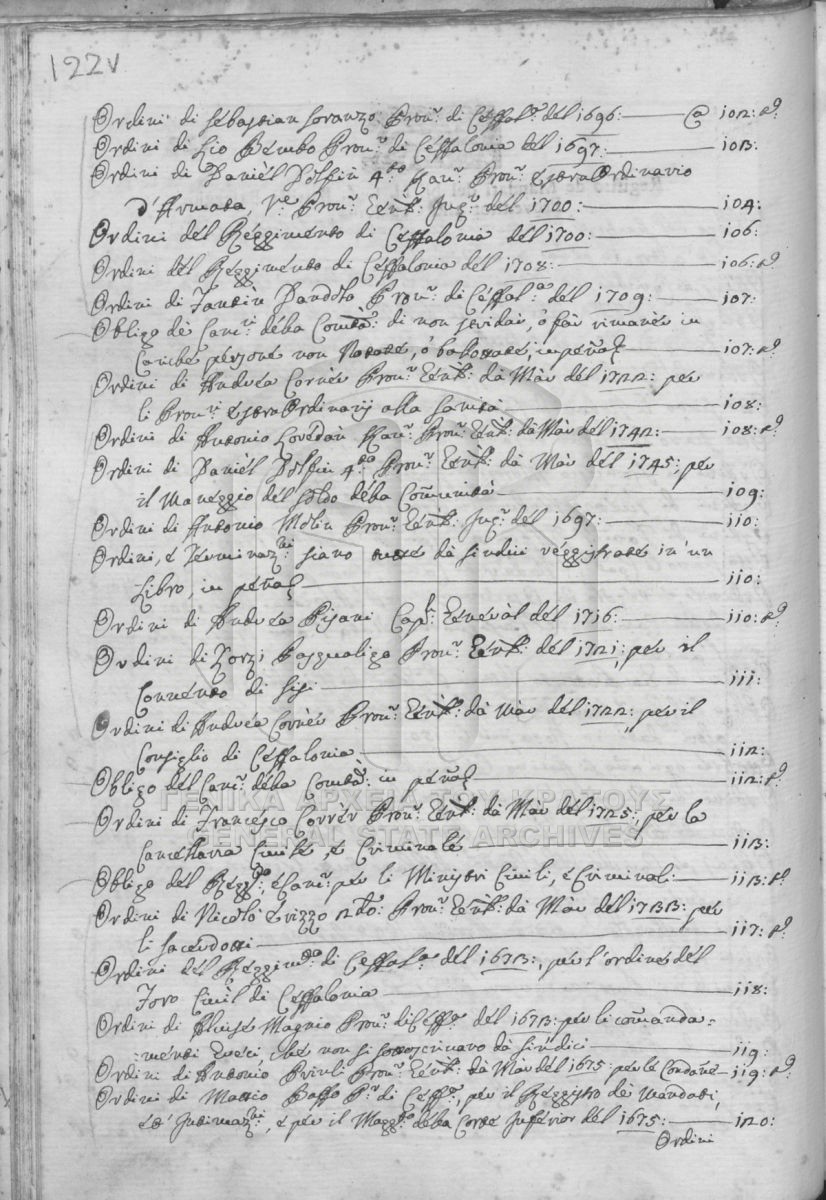 122v
Ordini di Sebastian Soranzo Prov.r di Ceffal.a del 1696: @ 102: t.o
Ordini di Lio Bembo Prov.r di Ceffalonia del 1697: 103:
Ordini di Daniel Dolfin 4.to Kav.r Prov.r Estraordinario
d'Armata, V.e Prov.r Gen.l Inq.r del 1700: 104:
Ordini del Reggimento di Ceffalonia del 1700: 106:
Ordini del Reggimento di Ceffalonia del 1708: 106: t.o
Ordini di Dandolo Prov.r di Ceffal.a del 1709: 107:
Obligo de Canc.ri della Comtà: di non far rimaner in
Cariche persone non Notate, ò ballottate, in pena 107: t.o
Ordini di Andrea Corner Prov.r Gen.l da Màr del 1722: per
li Prov.ri estraordinarij alla Sanità 108:
Ordini di Antonio Loredan Kav.r Prov.r Gen.l da Màr del 1742: 108: t.o
Ordini di Daniel Dolfin 4.to Prov.r Gen.l da Màr del 1745; per
il Maneggio del Soldo della Communità 109:
Ordini di Antonio Molin Prov.r Gen.l Inq.r del 1697: 110:
Ordini, e Terminaz.ni siano da Sindici reggistrate in un
Libro, in pena 110:
Ordini di Andrea Pisani Cap.n General del 1716: 110: t.o
Ordini di Zorzi Pasqualigo Prov.r Gen.l del 1721; per il
Convento di Sisi 111:
Ordini di Andrea Corner Prov.r Gen.l da Màr del 1722; per il
Consiglio di Ceffalonia 112:
Obligo del Canc.r della Comtà: in pena 112: t.o
Ordini di Francesco Corrèr Prov.r Gen.l da Màr del 1725; per la
Cancellaria Civile, e Criminale 113:
Obligo del Regg.to, e Canc.r per li Ministri Civili, e Criminali: 113: t.o
Ordini di Nicolò Erizzo 2.do: Prov.r Gen.l da Màr del 1733: per
li Sacerdotti 117: t.o
Ordini del Reggim.to di Ceffal.a del 1673:, per l'ordine del
Foro Civil di Ceffalonia 118:
Ordini di Alvise Magno Prov.r di Ceff.a del 1673: per li comanda=
=menti Greci, che non si da Sindici 119:
Ordini di Antonio Priuli Prov.r Gen.l da Màr del 1675: per le Condane 119: t.o
Ordini di Mattio Baffo P.r di Ceff.a, per il Reggistro de Mandati,
ed' Intimaz.ni, e per il Magg.r della Corte Inferior del 1675: 120:
Ordini
ΓΕΝΙΚΑ ΑΡΧΕΙΑ ΤΟΥ ΚΡΑΤΟΥΣ
GENERAL STATE ARCHIVES